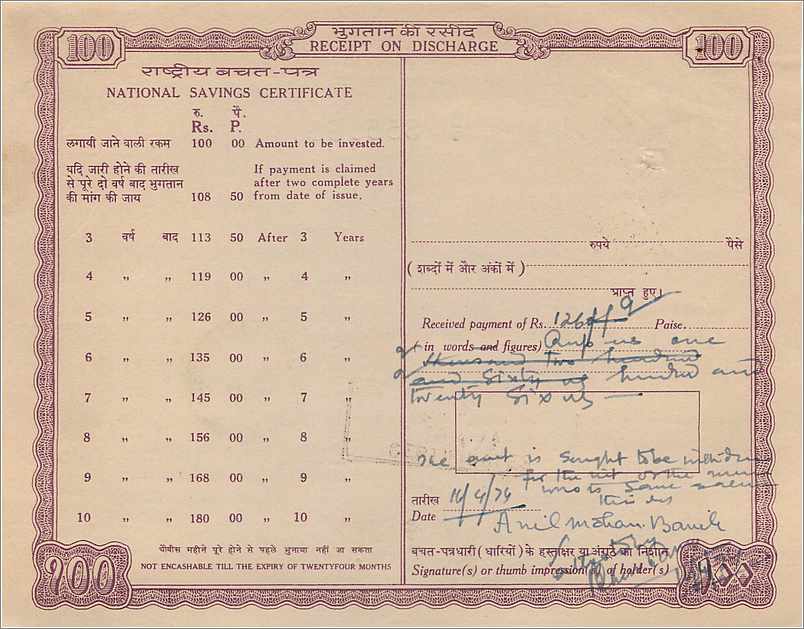 100
भुगतान की रसीद
RECEIPT ON DISCHARGE
100
राष्ट्रीय बचत-पत्र
NATIONAL SAVINGS CERTIFICATE
रु. पै.
Rs. P.
लगायी जाने वाली रकम 100 00 Amount to be invested.
यदि जारी होने की तारीख
से पूरे दो वर्ष बाद भुगतान
की मांग की जाय 108 50
If payment is claimed
after two complete years
from date of issue.
3 वर्ष बाद 113 50 After 3 Years
4 „ „ 119 00 „ 4 „
5 „ „ 126 00 „ 5 „
6 „ „ 135 00 „ 6 „
7 „ „ 145 00 „ 7 „
8 „ „ 156 00 „ 8 „
9 „ „ 168 00 „ 9 „
10 „ „ 180 00 „ 10 „
चौबीस महीने पूरे होने से पहले भुनाया नहीं जा सकता
NOT ENCASHABLE TILL THE EXPIRY OF TWENTYFOUR MONTHS
रुपये पैसे
(शब्दों में और अंकों में)
प्राप्त हुए।
Received payment of Rs. Paise
in words and figures) one
thousand two hundred
and Sixty
twenty Six
is sought to be
तारीख
Date 16/4/74
Anil Mohan Banik
बचत-पत्रधारी (धारियों) के हस्ताक्षर या अंगूठे का निशान
Signature(s) or thumb impression(s) of holder(s)
१००
१००